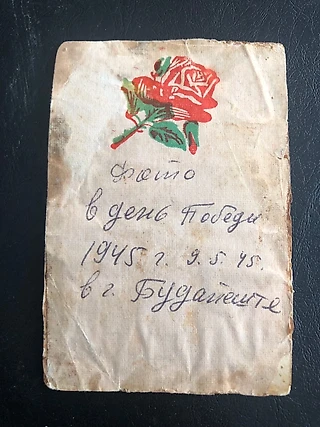 Фото
в день Победи
1945 г. 9.5.45.
в г. Будапеште